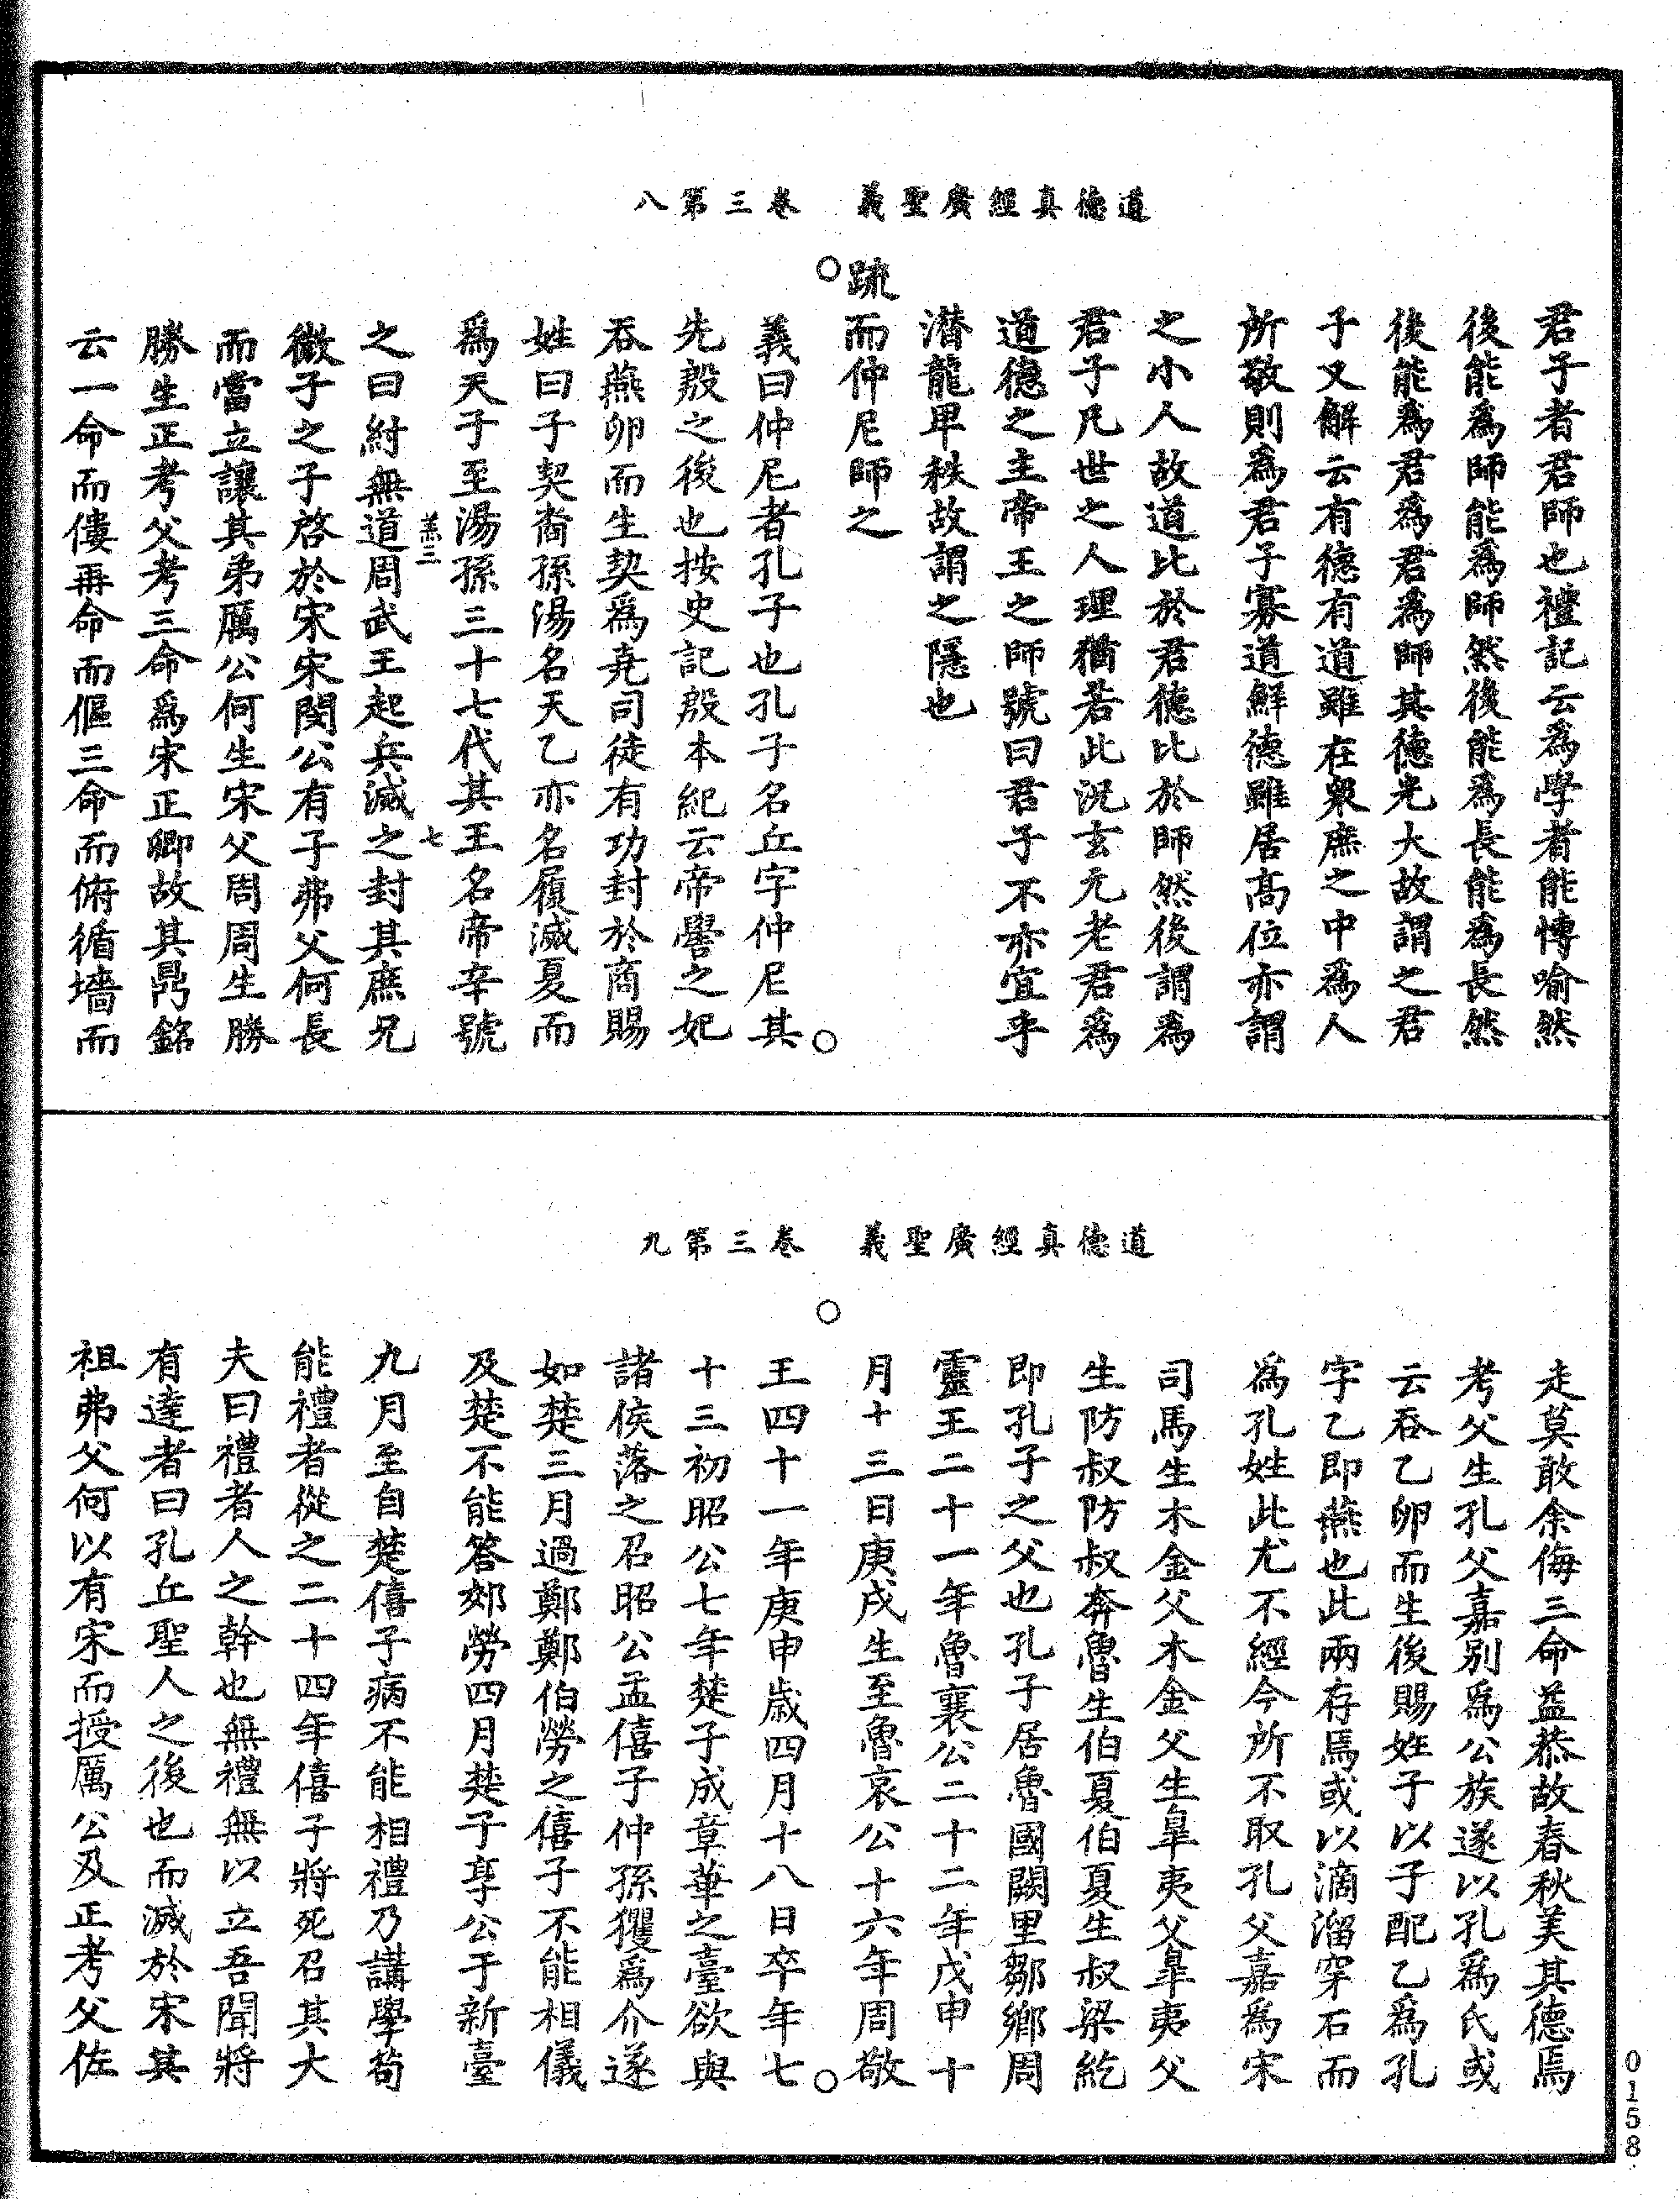 道德真經廣聖義　卷三第八
君子者君師也禮記云為學者能慱喻然
後能為師能為師然後能為長能為長然
後能為君為君為師其德光大故謂之君
子又解云有德有道雖在衆庶之中為人
所敬則為君子寡道鮮德雖居高位亦謂
之小人故道比於君德比於師然後謂為
君子凡世之人理猶若此況玄元老君為
道德之主帝王之師號曰君子不亦宜乎
潜龍卑秩故謂之隱也
疏而仲尼師之
義曰仲尼者孔子也孔子名丘字仲尼其
先殷之後也按史記殷本紀云帝嚳之妃
吞燕卵而生契為堯司徒有功封於商賜
姓曰子契裔孫湯名天乙亦名履滅夏而
為天子至湯孫三十七代其王名帝辛號
羔三　七
之曰紂無道周武王起兵滅之封其庶兄
微子之子啓於宋宋閔公有子弗父何長
而當立讓其弟厲公何生宋父周周生勝
勝生正考父考三命為宋正卿故其鼎銘
云一命而僂再命而傴三命而俯循墻而
道德真經廣聖義　卷三第九
走莫敢余侮三命益恭故春秋美其德焉
考父生孔父嘉別為公族遂以孔為氏或
云吞乙卵而生後賜姓子以子配乙為孔
字乙即燕也此兩存焉或以滴溜穿石而
為孔姓此尤不經今所不取孔父嘉為宋
司馬生木金父木金父生臯夷父臯夷父
生防叔防叔奔魯生伯夏伯夏生叔梁紇
即孔子之父也孔子居魯國闕里鄒鄉周
靈王二十一年魯襄公二十二年戊申十
月十三日庚戌生至魯哀公十六年周敬
王四十一年庚申歲四月十八日卒年七
十三初昭公七年楚子成章華之臺欲與
諸侯落之召昭公孟僖子仲孫玃為介遂
如楚三月過鄭鄭伯勞之僖子不能相儀
及楚不能答郊勞四月楚子享公于新臺
九月至自楚僖子病不能相禮乃講學苟
能禮者從之二十四年僖子將死召其大
夫曰禮者人之幹也無禮無以立吾聞將
有達者曰孔丘聖人之後也而滅於宋其
祖弗父何以有宋而授厲公及正考父佐
0158